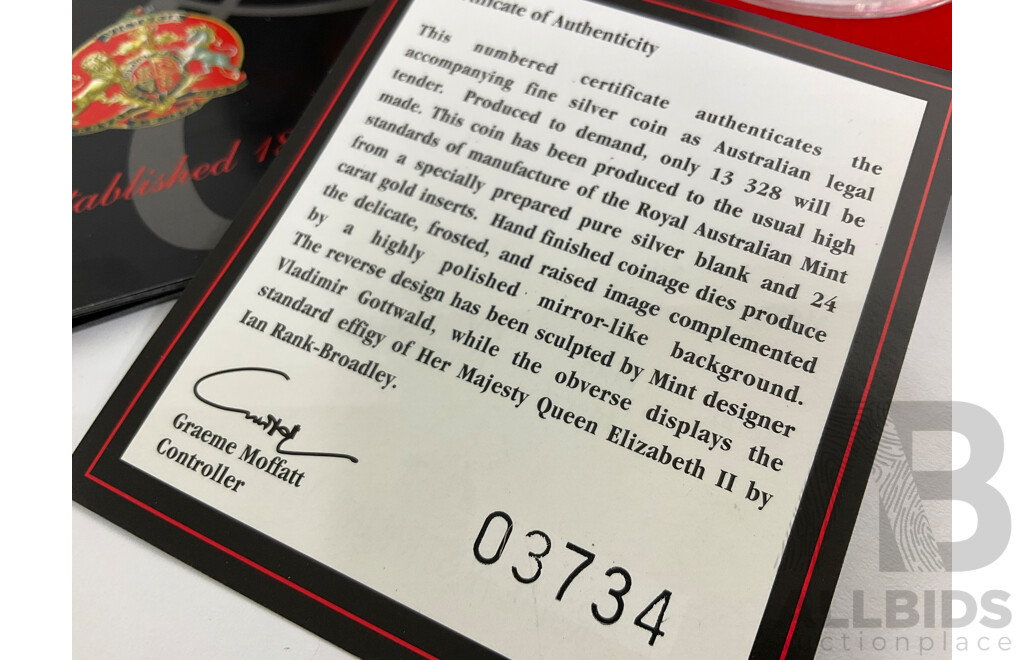 of Authenticity
This numbered certificate authenticates the
accompanying fine silver coin as Australian legal
tender. Produced to demand, only 13 328 will be
made. This coin has been produced to the usual high
standards of manufacture of the Royal Australian Mint
from a specially prepared pure silver blank and 24
carat gold inserts. Hand finished coinage dies produce
the delicate, frosted, and raised image complemented
by a highly polished mirror-like background.
The reverse design has been sculpted by Mint designer
Vladimir Gottwald, while the obverse displays the
standard effigy of Her Majesty Queen Elizabeth II by
Ian Rank-Broadley.
Graeme Moffatt
Controller
03734
B
ALLBIDS
auctionplace